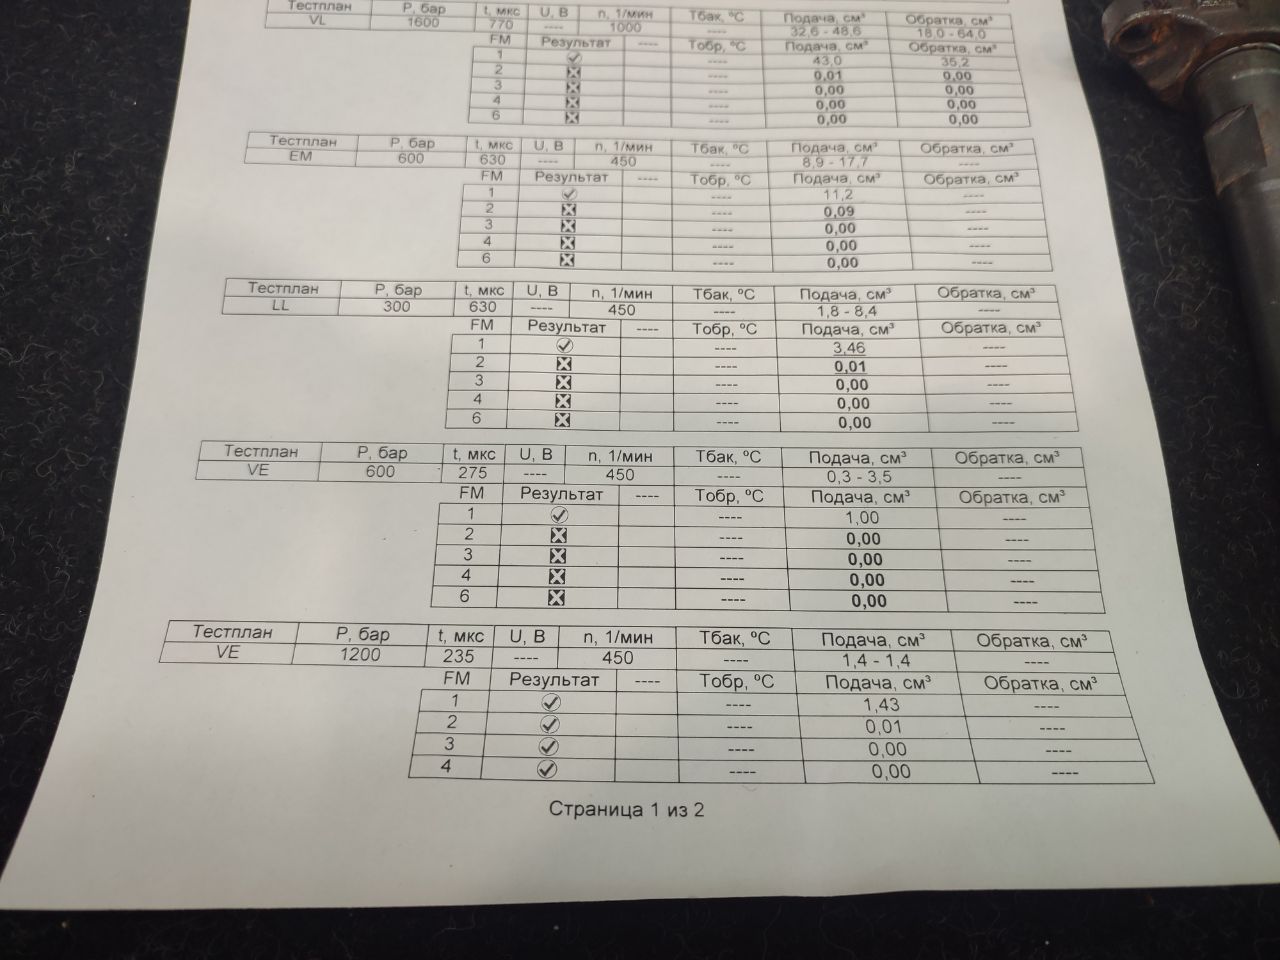 Тестплан P, бар t, мкс U, В n, 1/мин Тбак, ºC Подача, см³ Обратка, см³
VL 1600 770 ---- 1000 ---- 32,6 - 48,6 18,0 - 64,0
FM Результат ---- Тобр, ºC Подача, см³ Обратка, см³
1 ---- 43,0 35,2
2 ---- 0,01 0,00
3 ---- 0,00 0,00
4 ---- 0,00 0,00
6 ---- 0,00 0,00
Тестплан P, бар t, мкс U, В n, 1/мин Тбак, ºC Подача, см³ Обратка, см³
EM 600 630 ---- 450 ---- 8,9 - 17,7 ----
FM Результат ---- Тобр, ºC Подача, см³ Обратка, см³
1 ---- 11,2 ----
2 ---- 0,09 ----
3 ---- 0,00 ----
4 ---- 0,00 ----
6 ---- 0,00 ----
Тестплан P, бар t, мкс U, В n, 1/мин Тбак, ºC Подача, см³ Обратка, см³
LL 300 630 ---- 450 ---- 1,8 - 8,4 ----
FM Результат ---- Тобр, ºC Подача, см³ Обратка, см³
1 ---- 3,46 ----
2 ---- 0,01 ----
3 ---- 0,00 ----
4 ---- 0,00 ----
6 ---- 0,00 ----
Тестплан P, бар t, мкс U, В n, 1/мин Тбак, ºC Подача, см³ Обратка, см³
VE 600 275 ---- 450 ---- 0,3 - 3,5 ----
FM Результат ---- Тобр, ºC Подача, см³ Обратка, см³
1 ---- 1,00 ----
2 ---- 0,00 ----
3 ---- 0,00 ----
4 ---- 0,00 ----
6 ---- 0,00 ----
Тестплан P, бар t, мкс U, В n, 1/мин Тбак, ºC Подача, см³ Обратка, см³
VE 1200 235 ---- 450 ---- 1,4 - 1,4 ----
FM Результат ---- Тобр, ºC Подача, см³ Обратка, см³
1 ---- 1,43 ----
2 ---- 0,01 ----
3 ---- 0,00 ----
4 ---- 0,00 ----
Страница 1 из 2